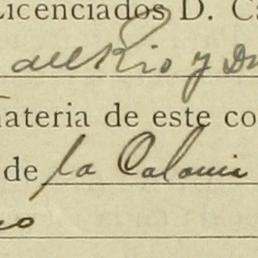 Licenciados D. Ca
del Rio y Du
materia de este co
de la Colonia